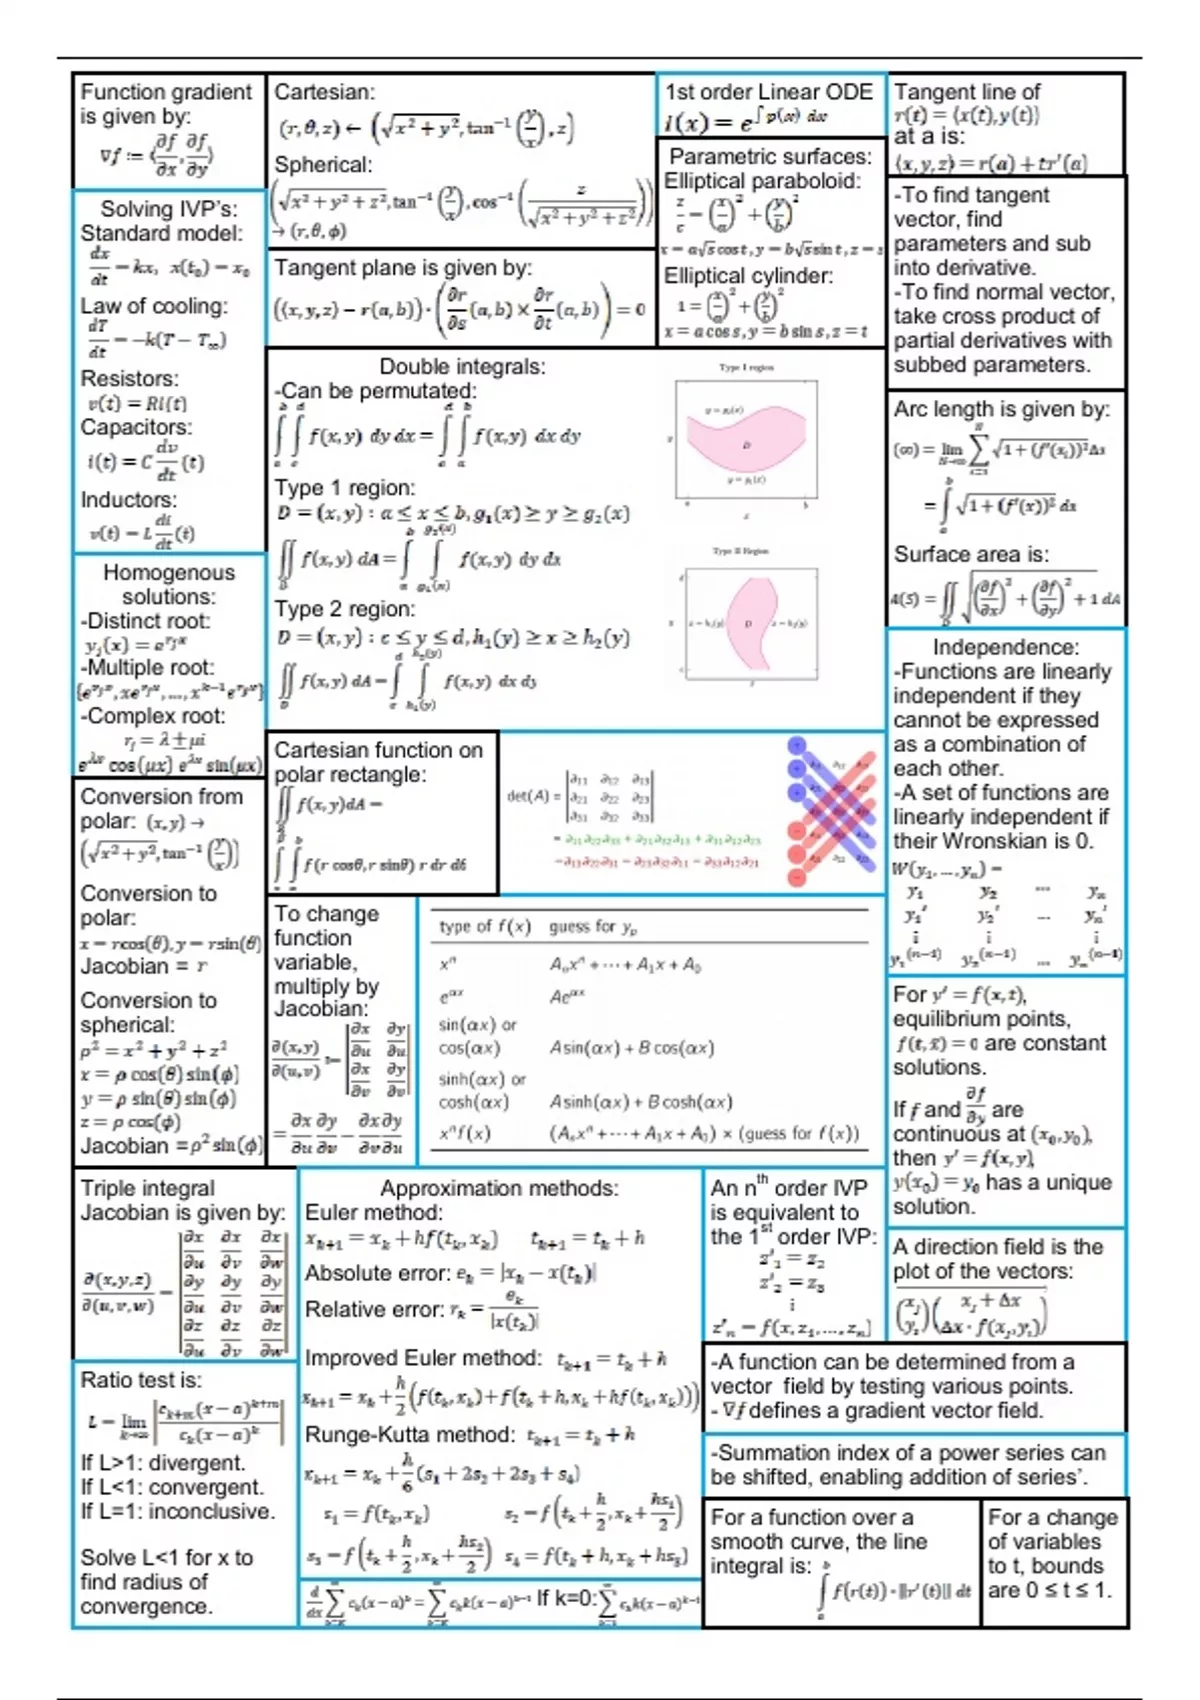 Function gradient
is given by:
∇f := ⟨∂f/∂x, ∂f/∂y⟩
Solving IVP's:
Standard model:
dx/dt = kx, x(t₀) = x₀
Law of cooling:
dT/dt = −k(T − T∞)
Resistors:
v(t) = Ri(t)
Capacitors:
i(t) = C dv/dt (t)
Inductors:
v(t) = L di/dt (t)
Homogenous
solutions:
-Distinct root:
yⱼ(x) = e^(rⱼx)
-Multiple root:
{e^(rⱼx), xe^(rⱼx), ..., x^(k−1)e^(rⱼx)}
-Complex root:
rⱼ = λ ± μi
e^(λx) cos(μx) e^(λx) sin(μx)
Conversion from
polar: (x,y) →
(√(x² + y²), tan⁻¹(y/x))
Conversion to
polar:
x = rcos(θ), y = rsin(θ)
Jacobian = r
Conversion to
spherical:
ρ² = x² + y² + z²
x = ρ cos(θ) sin(ϕ)
y = ρ sin(θ) sin(ϕ)
z = ρ cos(ϕ)
Jacobian = ρ² sin(ϕ)
Triple integral
Jacobian is given by:
∂(x,y,z)/∂(u,v,w) =
|∂x/∂u ∂x/∂v ∂x/∂w|
|∂y/∂u ∂y/∂v ∂y/∂w|
|∂z/∂u ∂z/∂v ∂z/∂w|
Ratio test is:
L = lim k→∞ |c_(k+m)(x − a)^(k+m) / c_k(x − a)^k|
If L>1: divergent.
If L<1: convergent.
If L=1: inconclusive.
Solve L<1 for x to
find radius of
convergence.
Cartesian:
(r, θ, z) ← (√(x² + y²), tan⁻¹(y/x), z)
Spherical:
(√(x² + y² + z²), tan⁻¹(y/x), cos⁻¹(z/√(x² + y² + z²)))
→ (r, θ, ϕ)
Tangent plane is given by:
((x, y, z) − r(a, b)) · (∂r/∂s (a, b) × ∂r/∂t (a, b)) = 0
1st order Linear ODE
I(x) = e^(∫p(x) dx)
Parametric surfaces:
Elliptical paraboloid:
z/c = (x/a)² + (y/b)²
x = a√s cos t, y = b√s sin t, z = s
Elliptical cylinder:
1 = (x/a)² + (y/b)²
x = a cos s, y = b sin s, z = t
Tangent line of
r(t) = {x(t), y(t)}
at a is:
(x, y, z) = r(a) + tr'(a)
-To find tangent
vector, find
parameters and sub
into derivative.
-To find normal vector,
take cross product of
partial derivatives with
subbed parameters.
Double integrals:
-Can be permutated:
∫_a^b ∫_c^d f(x, y) dy dx = ∫_c^d ∫_a^b f(x, y) dx dy
Type 1 region:
D = (x, y) : a ≤ x ≤ b, g₁(x) ≥ y ≥ g₂(x)
∬_D f(x, y) dA = ∫_a^b ∫_(g₁(x))^(g₂(x)) f(x, y) dy dx
Type 2 region:
D = (x, y) : c ≤ y ≤ d, h₁(y) ≥ x ≥ h₂(y)
∬_D f(x, y) dA = ∫_c^d ∫_(h₁(y))^(h₂(y)) f(x, y) dx dy
Type I region
D
Type II Region
D
Arc length is given by:
(∞) = lim N→∞ ∑ √(1 + (f'(xᵢ))²) Δx
= ∫_a^b √(1 + (f'(x))²) dx
Surface area is:
A(S) = ∬_D √((∂f/∂x)² + (∂f/∂y)² + 1) dA
Cartesian function on
polar rectangle:
∬ f(x, y)dA =
∫ ∫ f(r cosθ, r sinθ) r dr dθ
det(A) =
|a₁₁ a₁₂ a₁₃|
|a₂₁ a₂₂ a₂₃|
|a₃₁ a₃₂ a₃₃|
= a₁₁a₂₂a₃₃ + a₂₁a₃₂a₁₃ + a₃₁a₁₂a₂₃
−a₁₃a₂₂a₃₁ − a₂₃a₃₂a₁₁ − a₃₃a₁₂a₂₁
Independence:
-Functions are linearly
independent if they
cannot be expressed
as a combination of
each other.
-A set of functions are
linearly independent if
their Wronskian is 0.
W(y₁, ..., yₙ) =
y₁ y₂ ... yₙ
y₁' y₂' ... yₙ'
⋮ ⋮ ⋮
y₁^(n−1) y₂^(n−1) ... yₙ^(n−1)
To change
function
variable,
multiply by
Jacobian:
∂(x,y)/∂(u,v) :=
|∂x/∂u ∂y/∂u|
|∂x/∂v ∂y/∂v|
= ∂x/∂u ∂y/∂v − ∂x/∂v ∂y/∂u
type of f(x) guess for yₚ
xⁿ Aₙxⁿ + ··· + A₁x + A₀
e^(αx) Ae^(αx)
sin(αx) or
cos(αx) A sin(αx) + B cos(αx)
sinh(αx) or
cosh(αx) A sinh(αx) + B cosh(αx)
xⁿf(x) (Aₙxⁿ + ··· + A₁x + A₀) × (guess for f(x))
For y' = f(x, t),
equilibrium points,
f(t, x̄) = 0 are constant
solutions.
If f and ∂f/∂y are
continuous at (x₀,y₀),
then y' = f(x, y),
y(x₀) = y₀ has a unique
solution.
A direction field is the
plot of the vectors:
(xⱼ yⱼ) (xⱼ + Δx Δx · f(xⱼ, yⱼ))
Approximation methods:
Euler method:
x_(k+1) = x_k + hf(t_k, x_k) t_(k+1) = t_k + h
Absolute error: e_k = |x_k − x(t_k)|
Relative error: r_k = e_k/|x(t_k)|
Improved Euler method: t_(k+1) = t_k + h
x_(k+1) = x_k + h/2 (f(t_k, x_k) + f(t_k + h, x_k + hf(t_k, x_k)))
Runge-Kutta method: t_(k+1) = t_k + h
x_(k+1) = x_k + h/6 (s₁ + 2s₂ + 2s₃ + s₄)
s₁ = f(t_k, x_k) s₂ = f(t_k + h/2, x_k + hs₁/2)
s₃ = f(t_k + h/2, x_k + hs₂/2) s₄ = f(t_k + h, x_k + hs₃)
d/dx ∑ c_k(x − a)^k = ∑ c_k k(x − a)^(k−1) If k=0: ∑ c_k k(x − a)^(k−1)
An nth order IVP
is equivalent to
the 1st order IVP:
z'₁ = z₂
z'₂ = z₃
⋮
z'ₙ = f(x, z₁, ..., zₙ)
-A function can be determined from a
vector field by testing various points.
- ∇f defines a gradient vector field.
-Summation index of a power series can
be shifted, enabling addition of series'.
For a function over a
smooth curve, the line
integral is:
∫_a^b f(r(t)) · ||r'(t)|| dt
For a change
of variables
to t, bounds
are 0 ≤ t ≤ 1.